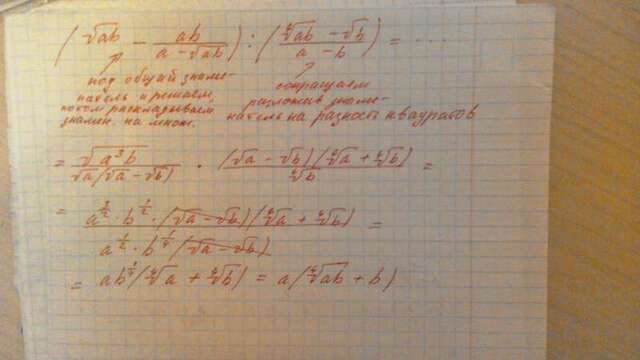 (√ab − ab/(a − √ab)) : ((∜ab − √b)/(a − b)) = ......
под общий знаме-
натель и решаем,
потом раскладываем
знамен. на множ.
сокращаем
разложив знаме-
натель на разность квадратов
= √(a³b)/(√a(√a − √b)) · (√a − √b)(∜a + ∜b)/∜b =
= a^(3/2) · b^(1/2) · (√a − √b)(∜a + ∜b)/(a^(1/2) · b^(1/4) (√a − √b)) =
= ab^(1/4)(∜a + ∜b) = a(∜ab + b)